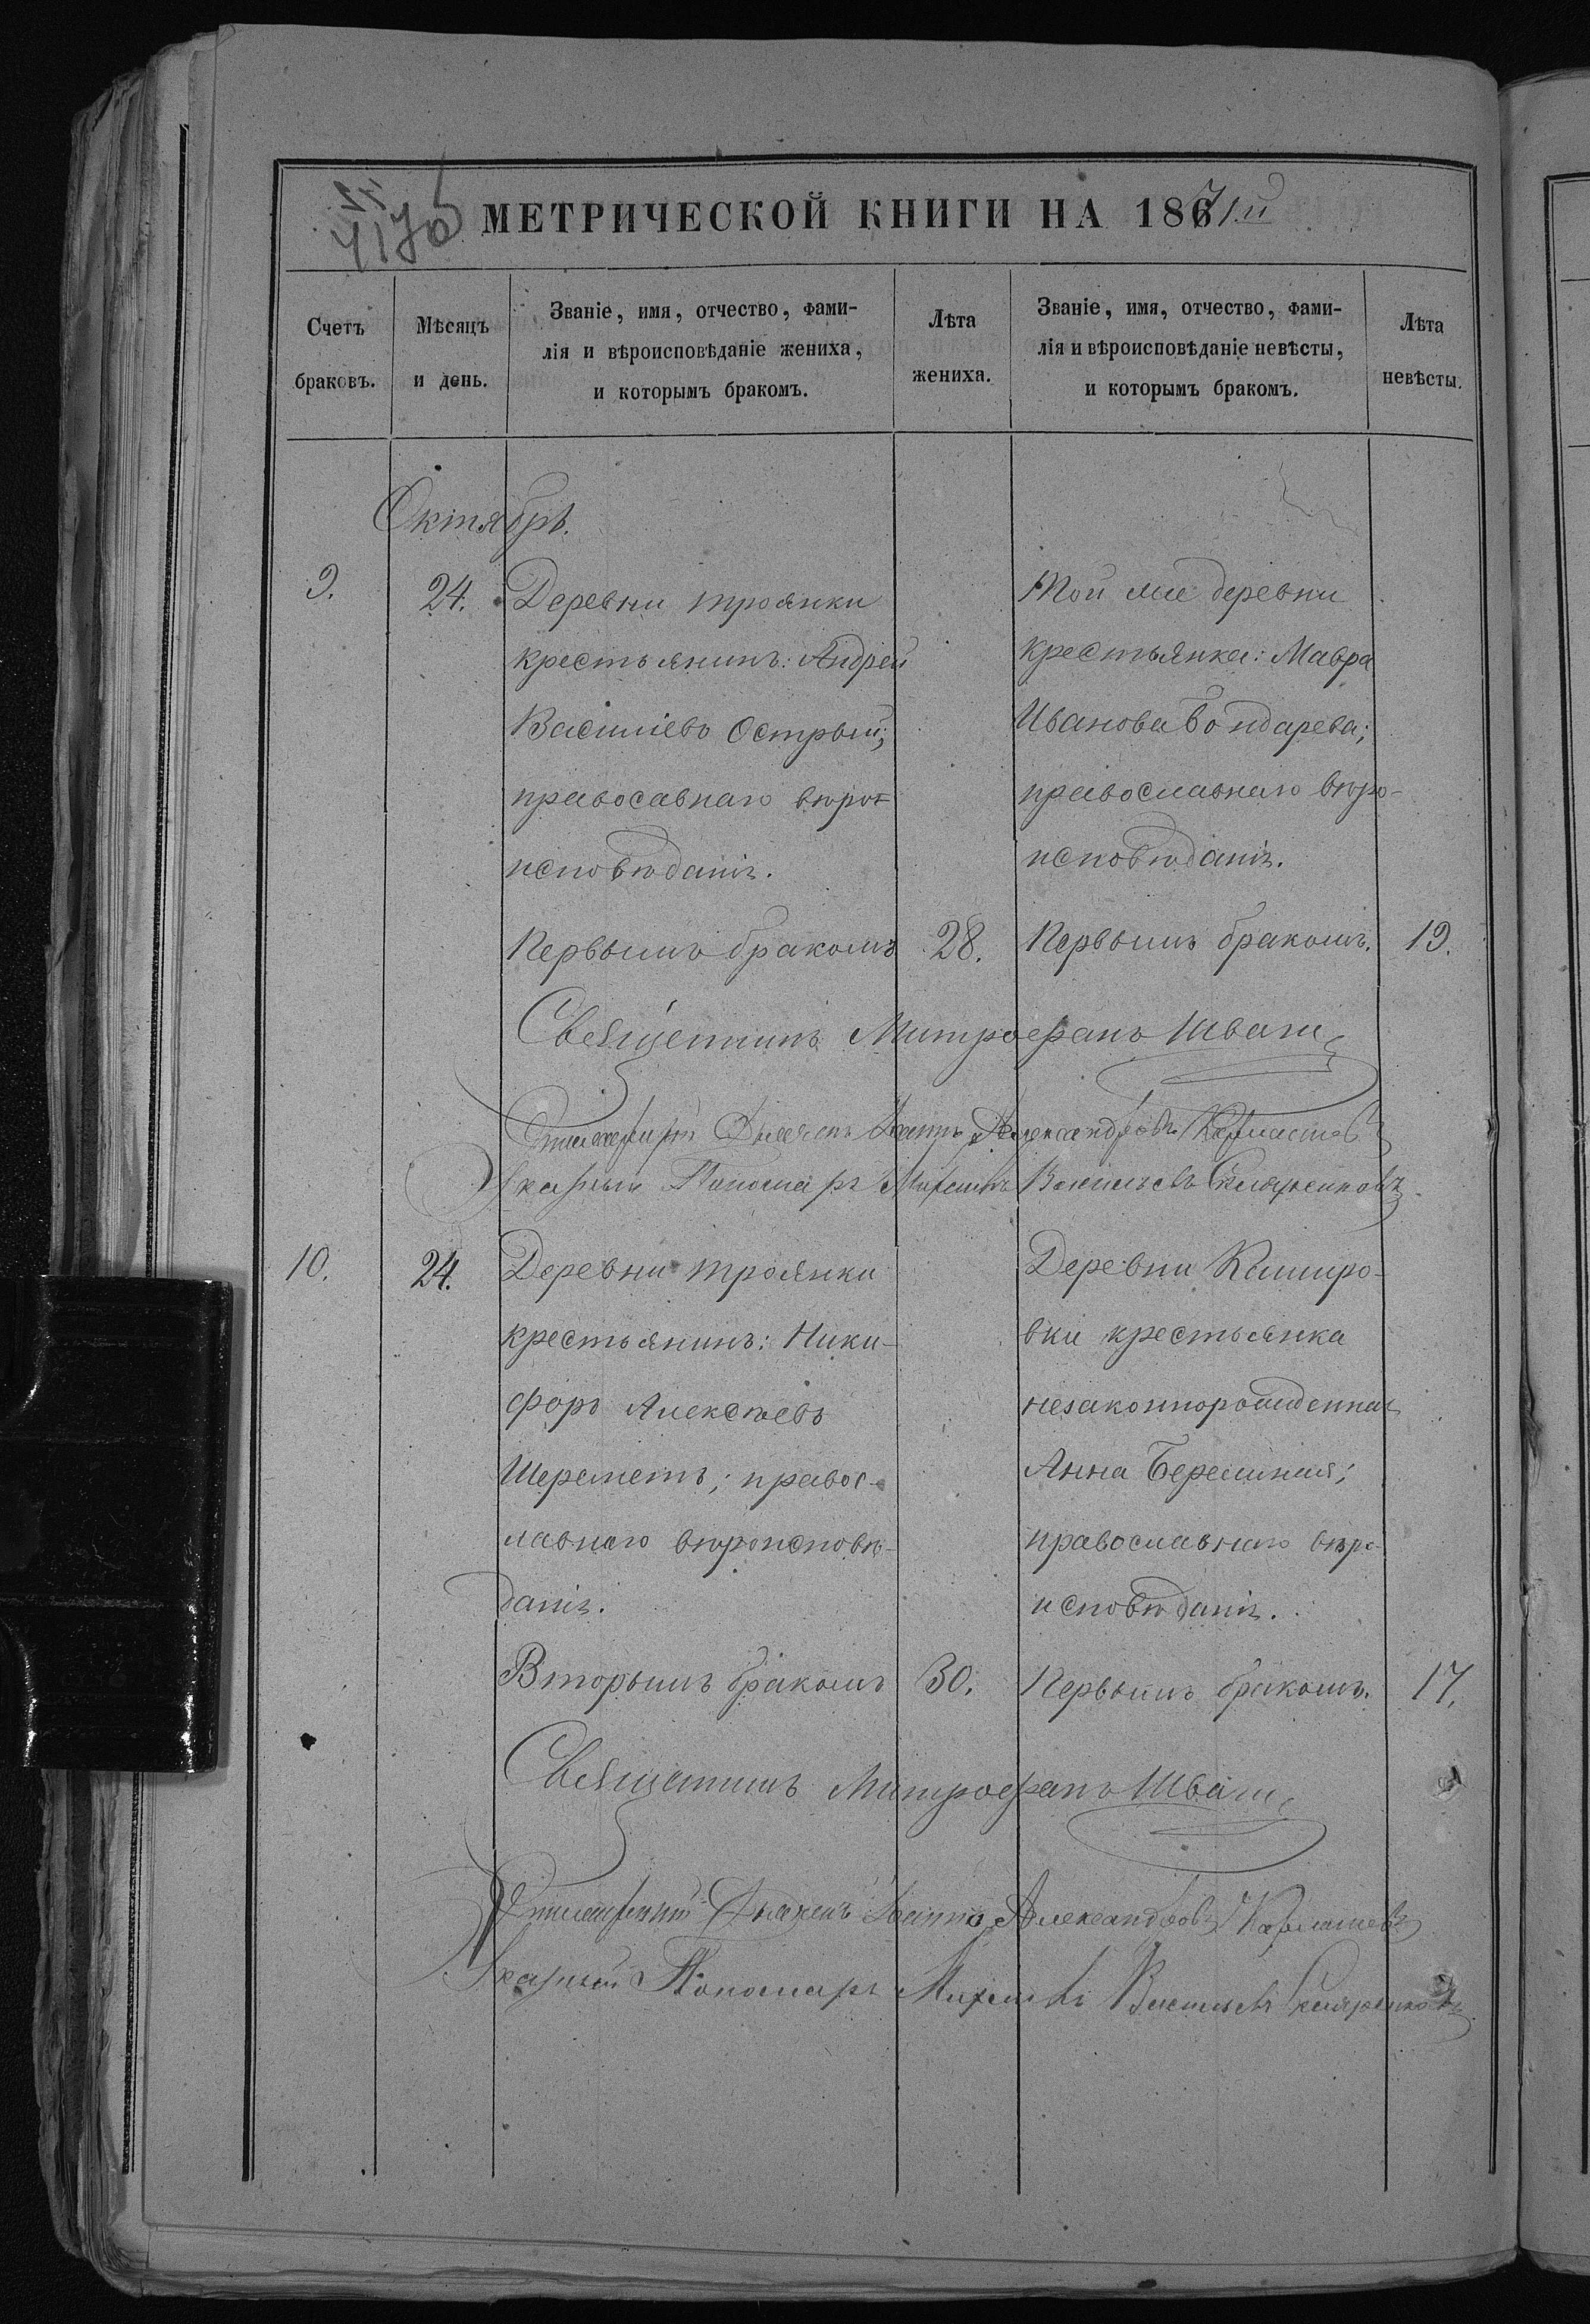 МЕТРИЧЕСКОЙ КНИГИ НА 1871й
Счетъ браковъ.
Мѣсяцъ и день.
Званіе, имя, отчество, фами-
лія и вѣроисповѣданіе жениха,
и которымъ бракомъ.
Лѣта жениха.
Званіе, имя, отчество, фами-
лія и вѣроисповѣданіе невѣсты,
и которымъ бракомъ.
Лѣта невѣсты.
Октябрь.
9.
24.
Деревни Троянки
крестьянинъ: Андрей
Василіевъ Острый;
правосавнаго вѣро-
исповѣданія.
Первымъ бракомъ
28.
Той же деревни
крестьянка: Мавра
Иванова Бондарева;
православнаго вѣро-
исповѣданія.
Первымъ бракомъ.
19.
Священникъ Митрофанъ Шваш
Дьяконъ Іоаннъ Александровъ
Пономарь Михаилъ Васильевъ
10.
24.
Деревни Троянки
крестьянинъ: Ники-
форъ Алексѣевъ
Шереметъ; правос-
лавнаго вѣроисповѣ-
данія.
Вторымъ бракомъ
30.
Деревни
вки крестьянка
незаконнорожденная
Анна
православнаго вѣро-
исповѣданія.
Первымъ бракомъ.
17.
Священникъ Митрофанъ Шваш
Дьяконъ Іоаннъ Александровъ
Пономарь Михаилъ Васильевъ